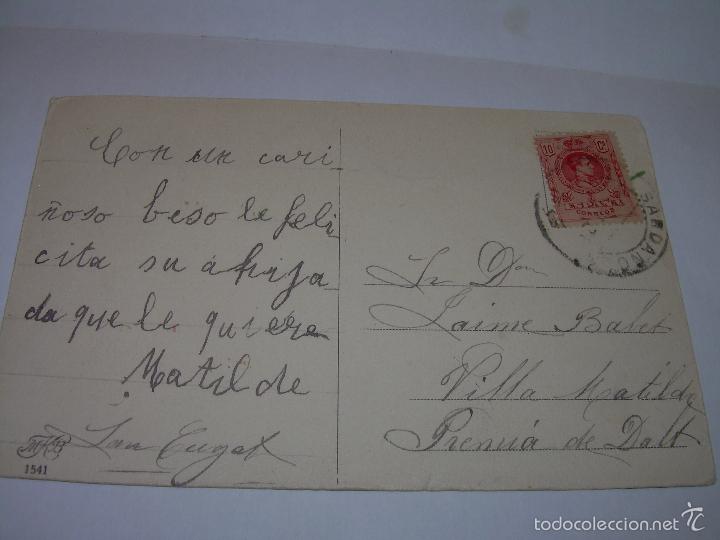 Con un cari-
ñoso beso le feli-
cita su ahija-
da que le quiere
Matilde
San Cugat
1541
10 Cs
ESPAÑA
CORREOS
SARDAÑO
Sr Don
Jaime Balet
Villa Matilde
Premiá de Dalt
todocoleccion.net